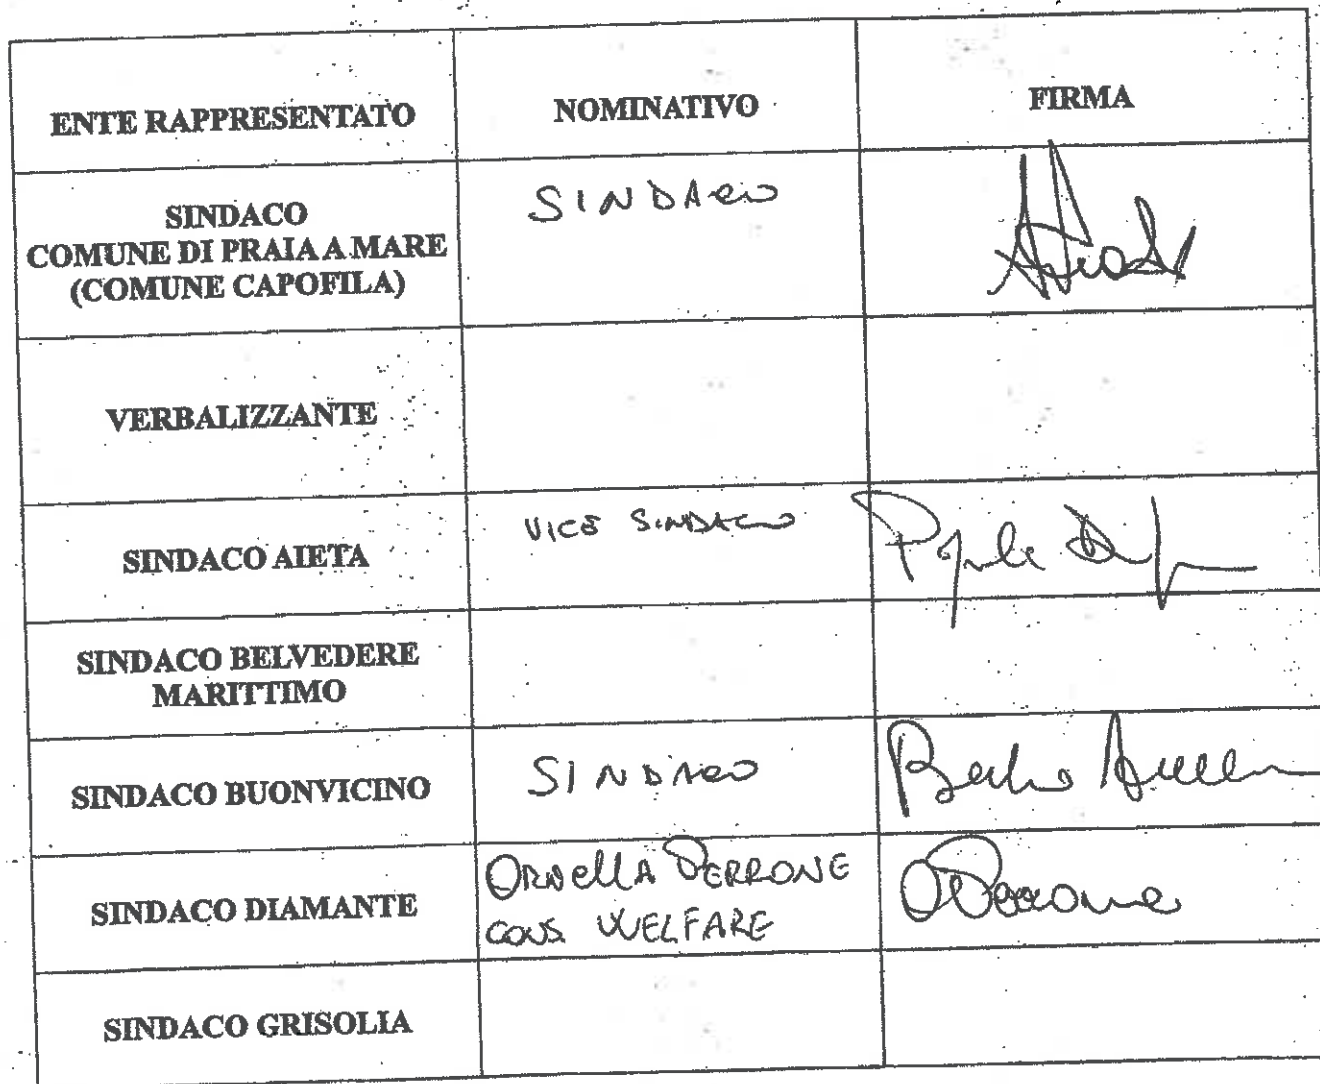 ENTE RAPPRESENTATO
NOMINATIVO
FIRMA
SINDACO
COMUNE DI PRAIA A MARE
(COMUNE CAPOFILA)
SINDACO
VERBALIZZANTE
SINDACO AIETA
VICE SINDACO
SINDACO BELVEDERE
MARITTIMO
SINDACO BUONVICINO
SINDACO
SINDACO DIAMANTE
ORNELLA PERRONE
CONS WELFARE
OPerrone
SINDACO GRISOLIA